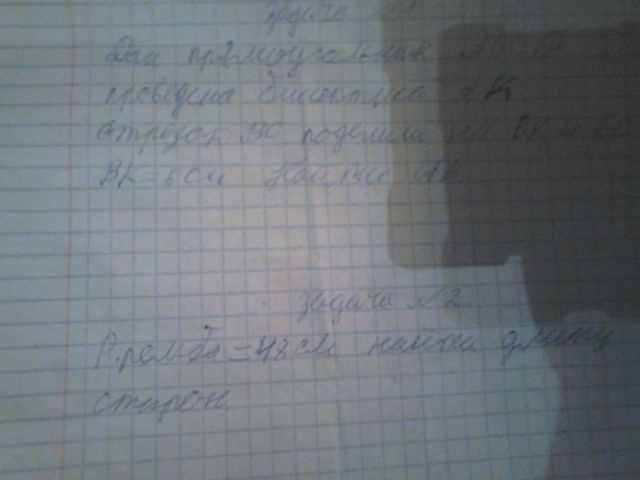 задача №1
Дан прямоугольник АВСД
проведена биссектриса АК
Отрезок ВС поделили на ВК и КС
ВК = 6 см Найти АВ.
задача №2
Р.ромба = 48 см найти длину
сторон.